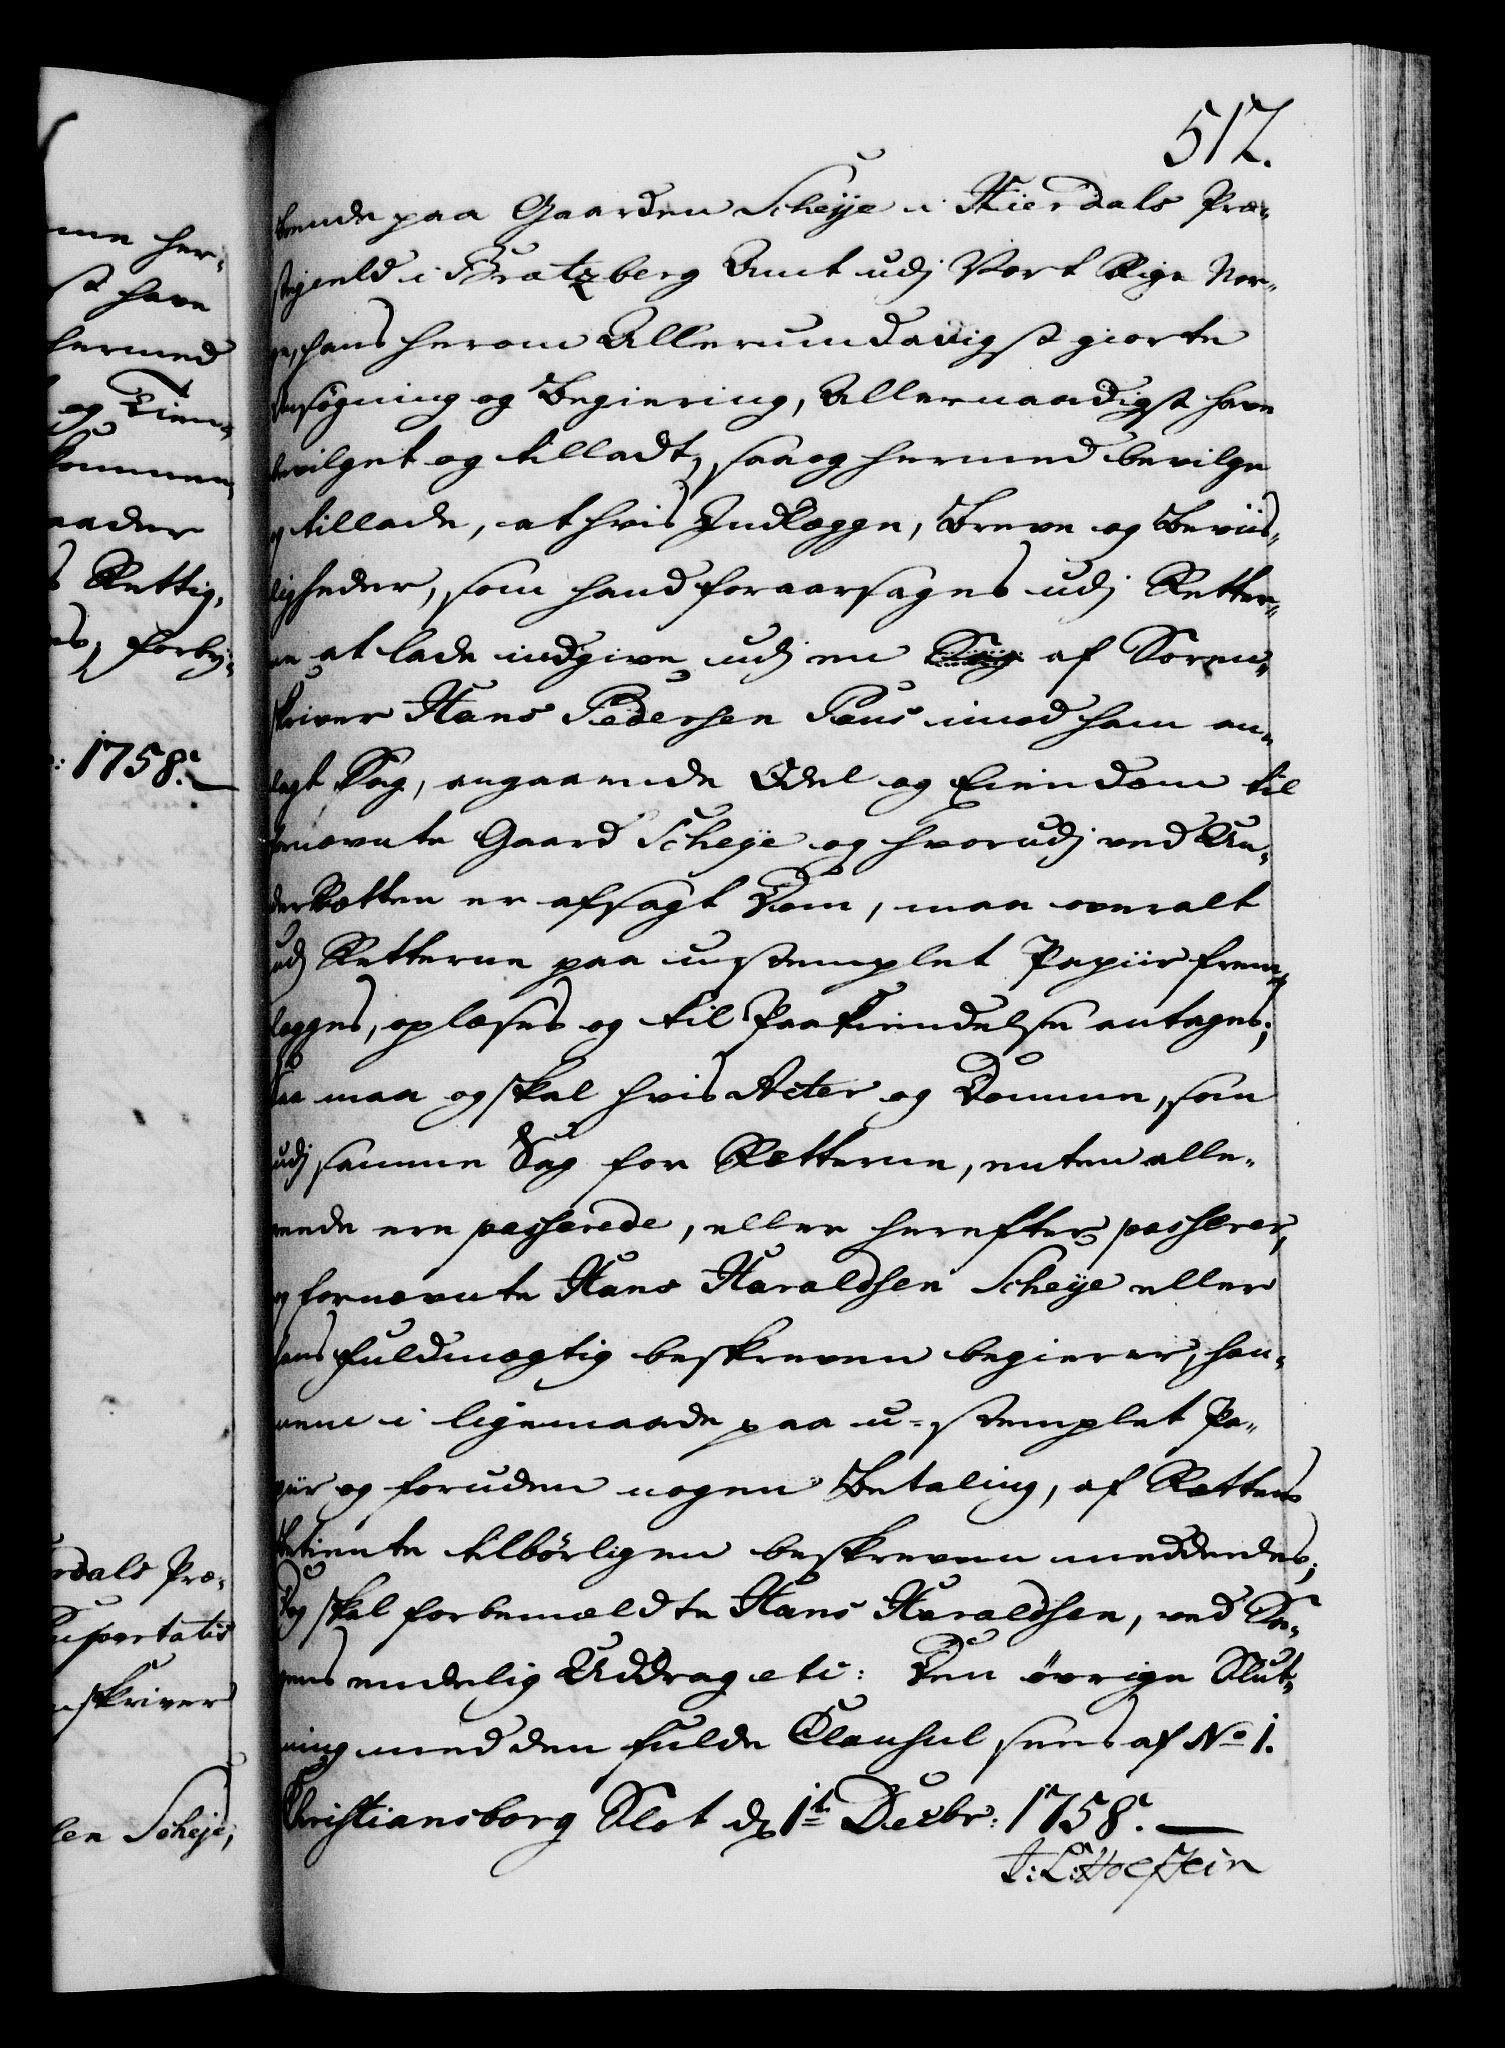 512.
boende paa Gaarden Scheije i Hierdals Præ-
stegield i Bratzberg Amt udj Vort Rige Nor-
ge, hans herom Allerunderdanigst giorte
Ansøgning og Begiering, Allernaadigst have
bevilget og tilladt, saa og hermed bevilge
og tillade, at hvis Indlægge, Breve og Beviis-
ligheder, som hand foraarsages udj Retter-
ne at lade indgive udj en Sag af Soren-
skriver Hans Pedersen Paus imod ham an-
lagt Sag, angaaende Odel og Eiendom til
fornævnte Gaard Scheije og hvorudj ved Un-
derRetten er afsagt Dom, maa overalt
udj Retterne paa ustemplet Papiir frem-
legges, oplæses og til Paakiendelse antages;
Saa maa og skal hvis Acter og Domme, som
udj samme Sag for Retterne, enten alle-
reede ere passerede, eller herefter passerer,
og fornævnte Hans Haraldsen Scheije eller
hans fuldmægtig beskreven begierer, han-
nem i ligemaade paa u-stemplet Pa-
piir og foruden nogen Betaling, af Rettens
Betiente tilbørligen beskreven meddeeles;
Dog skal forbemældte Hans Haraldsen, ved Sa-
gens endelig Uddrag etc: Den øvrige Slut-
ning med den fulde Clausul sees af No 1.
Christiansborg Slot d. 1te Decbr: 1758.
J: L: Holstein
me her-
st have
hermed
og Tien-
kommen,
aader
s Rettig,
es, forby-
: 1758.
rdals Præ-
Supportatis
nskriver
len Scheje,